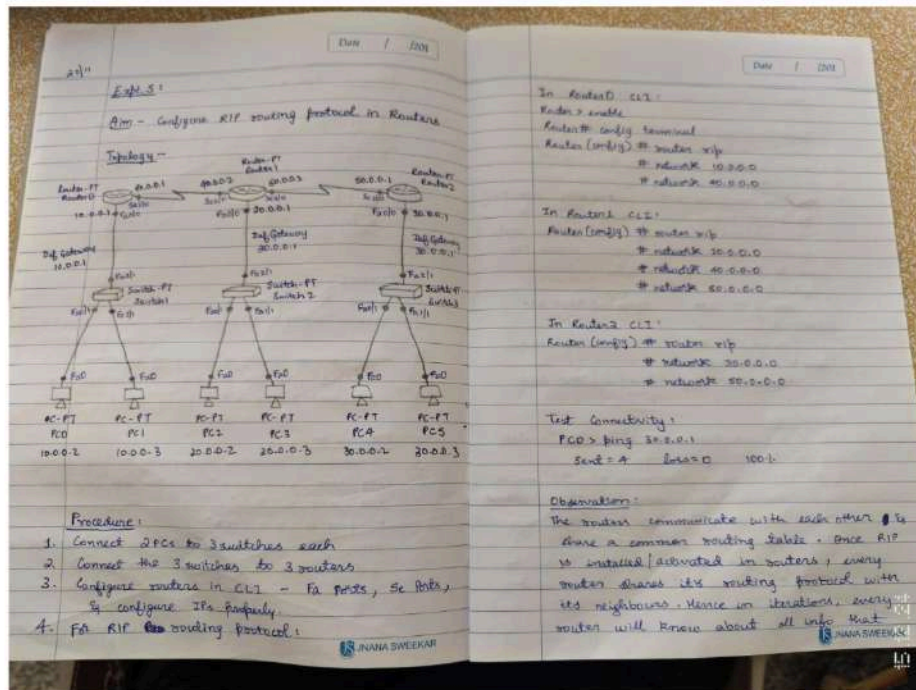 Date / /201
20/11
Expt. 5:
Aim - Configure RIP routing protocol in Routers
Topology -
Router-PT Router0 40.0.0.1
10.0.0.1
40.0.0.2 Router-PT Router1 50.0.0.2
20.0.0.1
50.0.0.1 Router-PT Router2
30.0.0.1
Def Gateway 10.0.0.1
Def Gateway 20.0.0.1
Def Gateway 30.0.0.1
Switch-PT Switch1
Switch-PT Switch2
Switch-PT Switch3
Fa0 Fa0 Fa0 Fa0 Fa0 Fa0
PC-PT PC-PT PC-PT PC-PT PC-PT PC-PT
PC0 PC1 PC2 PC3 PC4 PC5
10.0.0.2 10.0.0.3 20.0.0.2 20.0.0.3 30.0.0.2 30.0.0.3
Procedure:
1. Connect 2PCs to 3 switches each
2. Connect the 3 switches to 3 routers
3. Configure routers in CLI - Fa Ports, Se Ports,
& configure IPs properly.
4. For RIP routing protocol:
JNANA SWEEKAR
Date / /201
In Router0 CLI:
Router > enable
Router# config terminal
Router (config) # router rip
# network 10.0.0.0
# network 40.0.0.0
In Router1 CLI:
Router (config) # router rip
# network 20.0.0.0
# network 40.0.0.0
# network 50.0.0.0
In Router2 CLI:
Router (config) # router rip
# network 30.0.0.0
# network 50.0.0.0
Test Connectivity:
PC0 > ping 30.0.0.1
Sent = 4 loss=0 100%
Observation:
The routers communicate with each other &
share a common routing table. Once RIP
is installed/activated in routers, every
router shares its routing protocol with
its neighbours. Hence in iterations, every
router will know about all info that
JNANA SWEEKAR